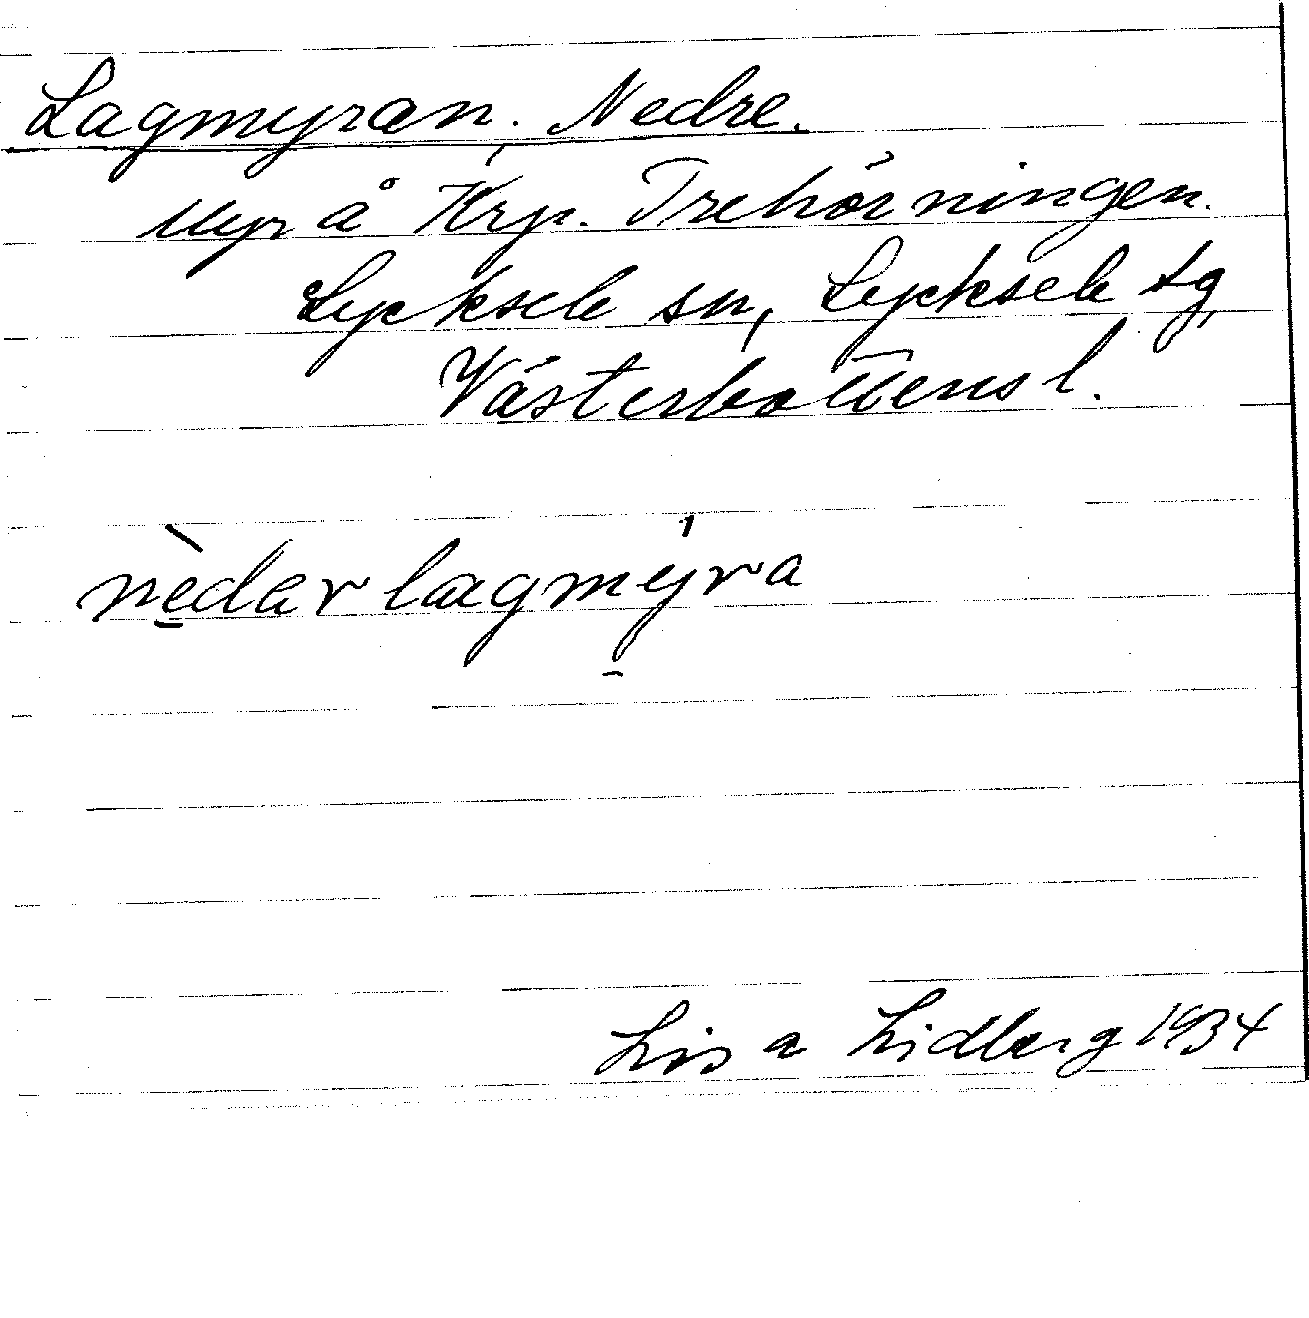 Lagmyran. Nedre.
Myr å Krp. Trehörningen.
Lycksele sn, Lycksele tg,
Västerbottens l.
nèdar lagmýra
Lisa Lidberg 1934